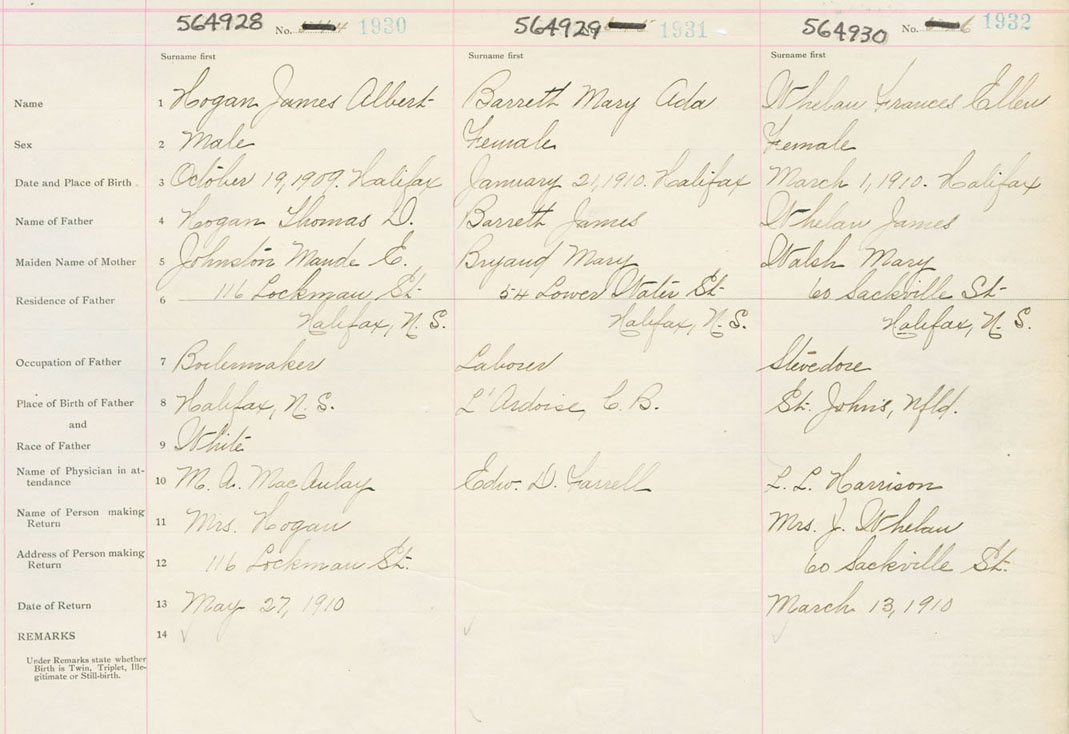 564928 No. 1930 564929 1931 564930 No. 1932
Surname first Surname first Surname first
Name 1 Hogan James Albert Barrett Mary Ada Whelan Frances Ellen
Sex 2 Male Female Female
Date and Place of Birth. 3 October 19, 1909. Halifax January 21, 1910. Halifax March 1, 1910. Halifax
Name of Father 4 Hogan Thomas D. Barrett James Whelan James
Maiden Name of Mother 5 Johnston Maude E. Bryand Mary Walsh Mary
Residence of Father 6 116 Lockman St. 54 Lower Water St 60 Sackville St
Halifax, N.S. Halifax, N.S. Halifax, N.S.
Occupation of Father 7 Boilermaker Laborer Stevedore
Place of Birth of Father 8 Halifax, N.S. L'Ardoise, C.B. St. John's, Nfld.
and
Race of Father 9 White
Name of Physician in at-
tendance 10 M. A. MacAulay Edw. D. Farrell L. L. Harrison
Name of Person making
Return 11 Mrs. Hogan Mrs. J. Whelan
Address of Person making
Return 12 116 Lockman St. 60 Sackville St.
Date of Return 13 May 27, 1910 March 13, 1910
REMARKS 14
Under Remarks state whether
Birth is Twin, Triplet, Ille-
gitimate or Still-birth.